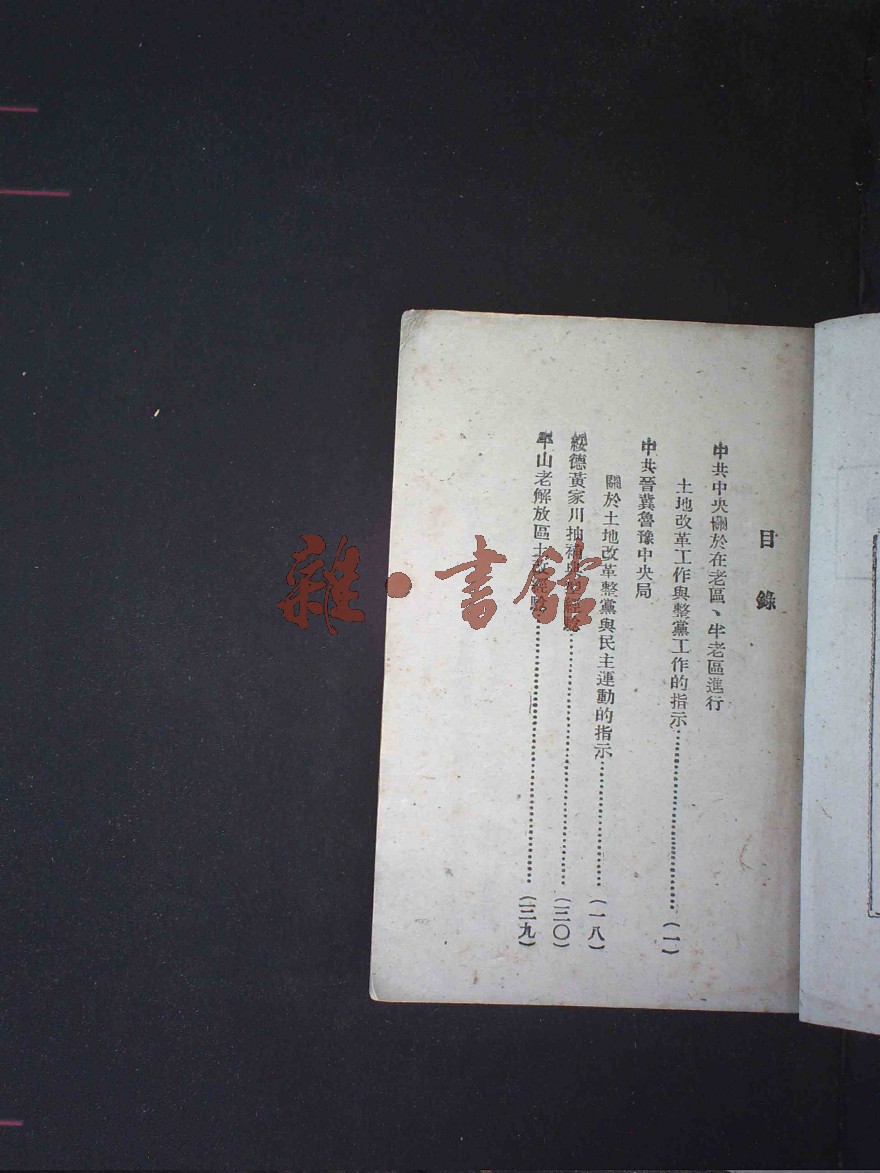 目錄
中共中央關於在老區、半老區進行
土地改革工作與整黨工作的指示…………(一)
中共晉冀魯豫中央局
關於土地改革整黨與民主運動的指示…………(一八)
綏德黃家川抽補…………(三〇)
平山老解放區土改經驗…………(三九)
雜·書館